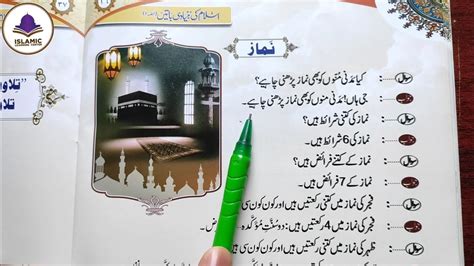 ISLAMIC
اسلام کی بنیادی باتیں
نماز
سوال کیا مَدَنی مُنّوں کو بھی نماز پڑھنی چاہیے؟
جواب جی ہاں! مَدَنی منوں کو بھی نماز پڑھنی چاہیے۔
سوال نماز کی کتنی شرائط ہیں؟
جواب نماز کی 6 شرائط ہیں۔
سوال نماز کے کتنے فرائض ہیں؟
جواب نماز کے 7 فرائض ہیں۔
سوال فجر کی نماز میں کتنی رکعتیں ہیں اور کون کون سی
جواب فجر کی نماز میں 4 رکعتیں ہیں: دو سنّتِ مؤکدہ
سوال ظہر کی نماز میں کتنی رکعتیں ہیں اور کون کون سی